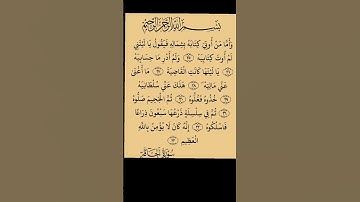 بسم الله الرحمن الرحيم
وَأَمَّا مَنْ أُوتِيَ كِتَابَهُ بِشِمَالِهِ فَيَقُولُ يَا لَيْتَنِي
لَمْ أُوتَ كِتَابِيَهْ ٢٥ وَلَمْ أَدْرِ مَا حِسَابِيَهْ
٢٦ يَا لَيْتَهَا كَانَتِ الْقَاضِيَةَ ٢٧ مَا أَغْنَى
عَنِّي مَالِيَهْ ٢٨ هَلَكَ عَنِّي سُلْطَانِيَهْ
٢٩ خُذُوهُ فَغُلُّوهُ ٣٠ ثُمَّ الْجَحِيمَ صَلُّوهُ
٣١ ثُمَّ فِي سِلْسِلَةٍ ذَرْعُهَا سَبْعُونَ ذِرَاعًا
فَاسْلُكُوهُ ٣٢ إِنَّهُ كَانَ لَا يُؤْمِنُ بِاللَّهِ
الْعَظِيمِ ٣٣
سورة الحاقة